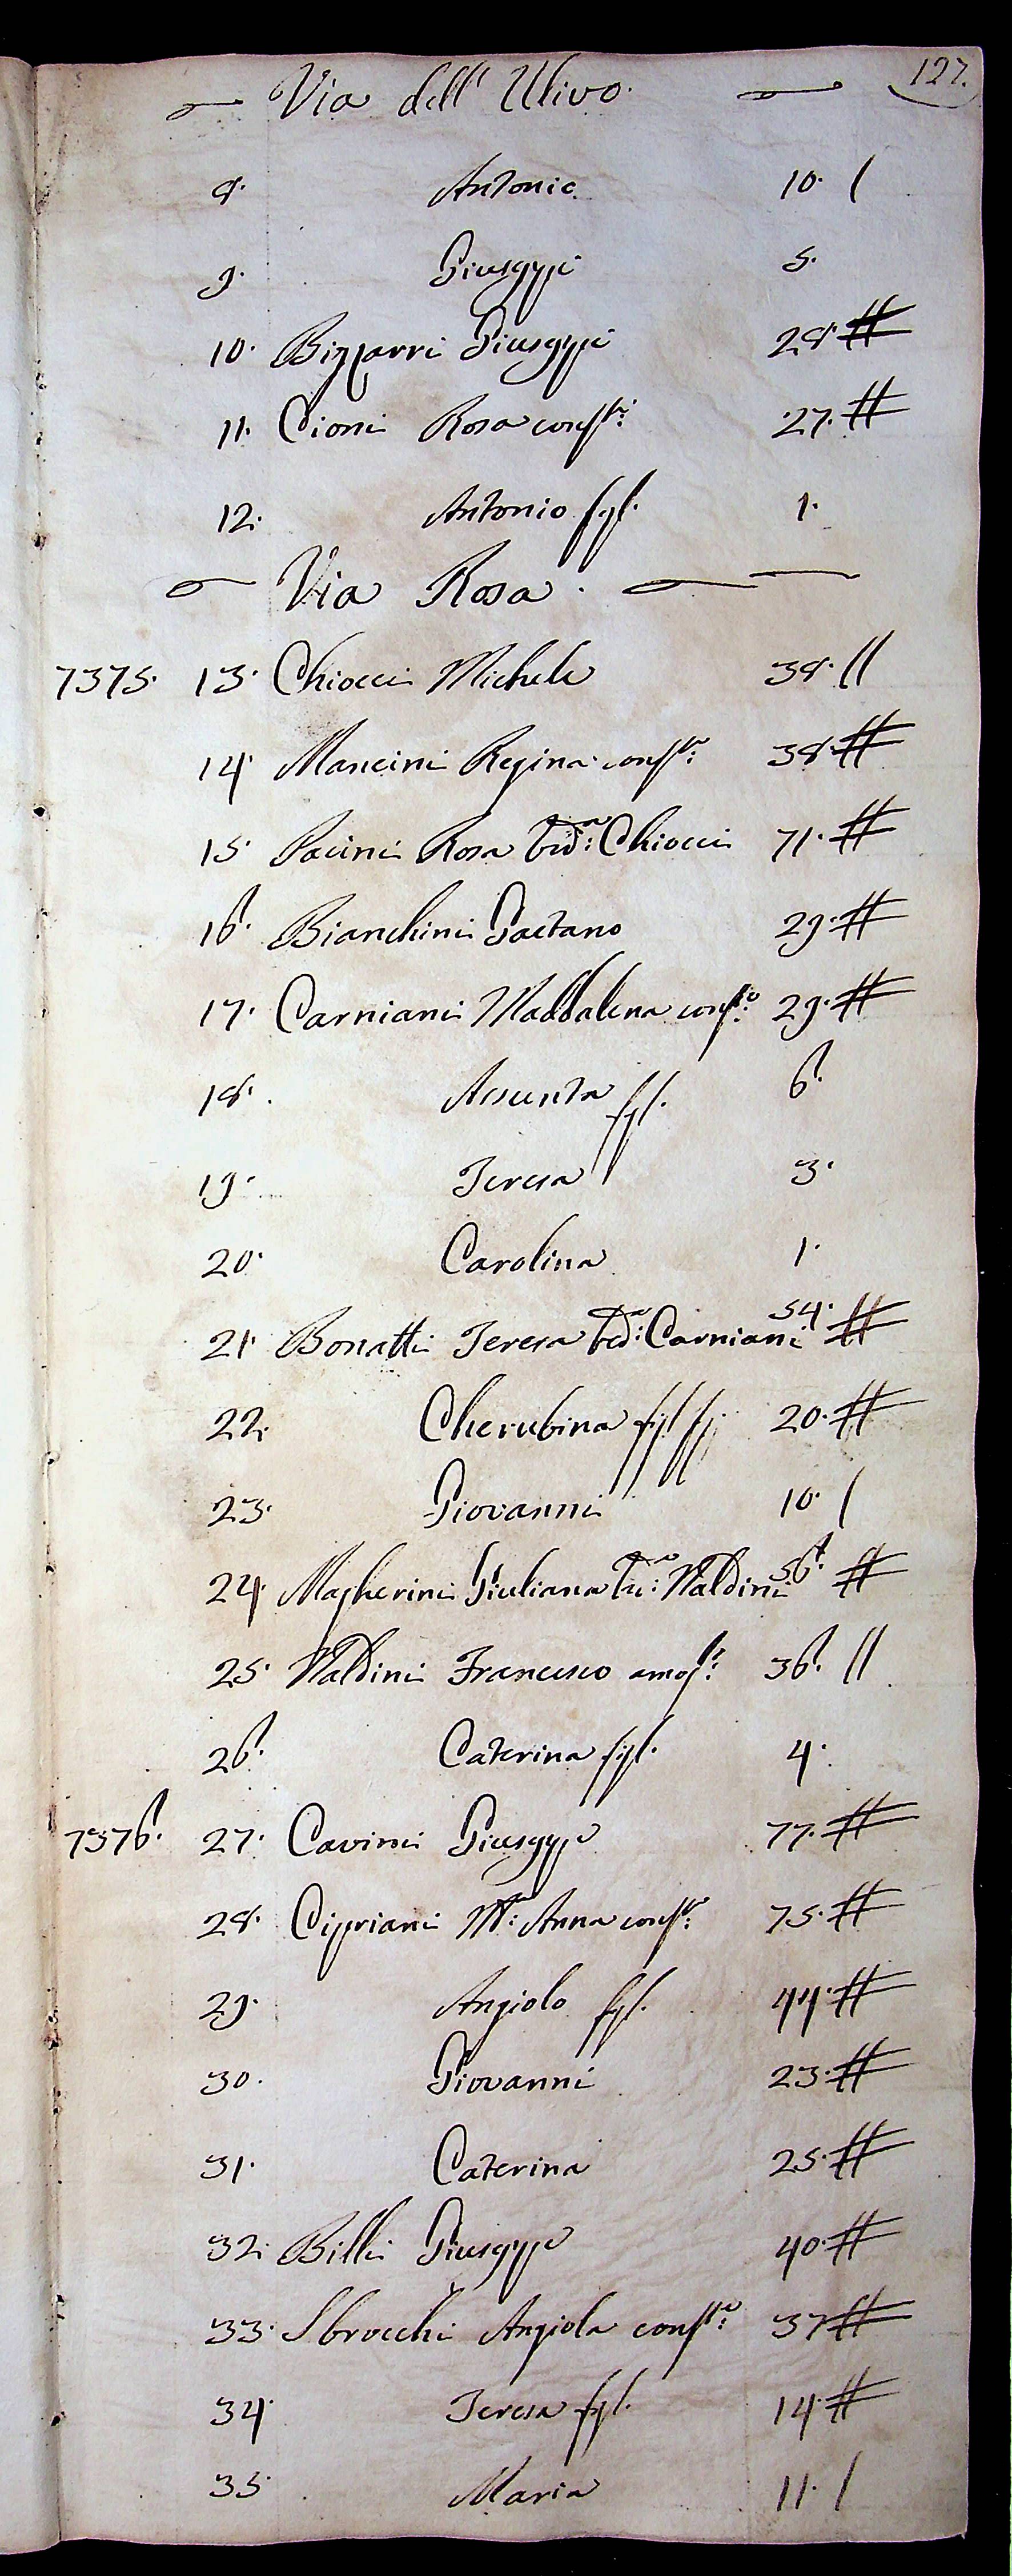 127.
Via dell' Ulivo.
8. Antonio 10. /
9. Giuseppe 5.
10. Bizzarri Giuseppe 28. #
11. Cioni Rosa conste: 27. #
12. Antonio figl. 1.
Via Rosa.
7375. 13. Chiocci Michele 38. //
14. Mancini Regina conste: 38. #
15. Pacini Rosa Vida: Chiocci 71. #
16. Bianchini Gaetano 29. #
17. Carniani Maddalena conste: 29. #
18. Assunta figl. 6.
19. Teresa 3.
20. Carolina 1.
21. Bonatti Teresa Veda: Carniani 54. #
22. Cherubina figl 20. #
23. Giovanni 10. /
24. Magherini Giuliana Va: Naldini 56. #
25. Naldini Francesco 36. //
26. Caterina figl. 4.
7376. 27. Cavini Giuseppe 77. #
28. Cipriani Ma: Anna conste: 75. #
29. Angiolo figl. 44. #
30. Giovanni 23. #
31. Caterina 25. #
32. Billi Giuseppe 40. #
33. Sbrocchi Angiola conste: 37 #
34. Teresa figl. 14. #
35. Maria 11. /